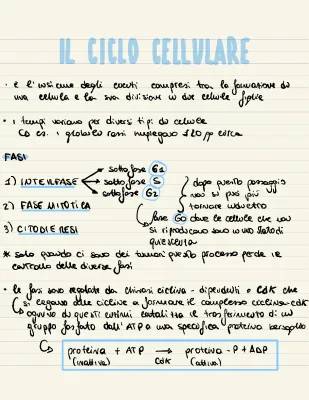 IL CICLO CELLULARE
• è l'insieme degli eventi compresi tra la formazione di
una cellula e la sua divisione in due cellule figlie
• i tempi variano per diversi tipi di cellule
es. i globuli rossi impiegano 120 gg circa
FASI
sotto fase G1
1) INTERFASE sotto fase S
sottofase G2
dopo questo passaggio
non si può più
tornare indietro
2) FASE MITOTICA
fase G0 dove le cellule che non
3) CITODIERESI
si riproducono sono in uno stato di
quiescenza
* solo quando ci sono dei tumori questo processo perde il
controllo delle diverse fasi
• le fasi sono regolate da chinasi ciclina-dipendenti o CdK che
si legano alle cicline a formare il complesso ciclina-cdK
ognuno di questi enzimi catalizza il trasferimento di un
gruppo fosfato dall'ATP a una specifica proteina bersaglio
proteina + ATP → proteina-P + ADP
(inattiva) CdK (attiva)